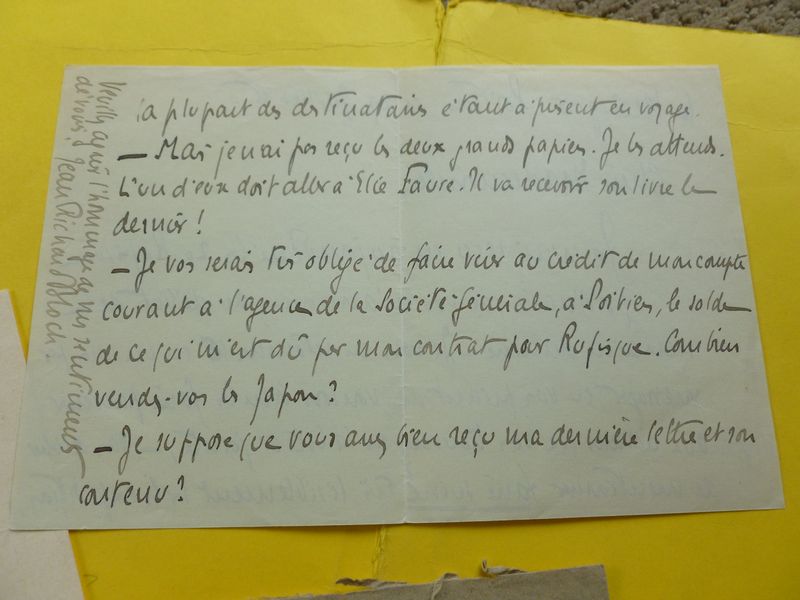 la plupart des destinataires étant à présent en voyage.
— Mais je n'ai pas reçu les deux grands papiers. Je les attends.
L'un d'eux doit aller à Elie Faure. Il va recevoir son livre le
dernier !
— Je vous serais très obligé de faire virer au crédit de mon compte
courant à l'agence de la Société Générale, à Poitiers, le solde
de ce qui m'est dû par mon contrat pour Rufisque. Combien
vendez-vous les Japon ?
— Je suppose que vous avez bien reçu ma dernière lettre et son
contenu ?
Veuillez agréer l'hommage de mes sentiments
dévoués. Jean Richard Bloch.